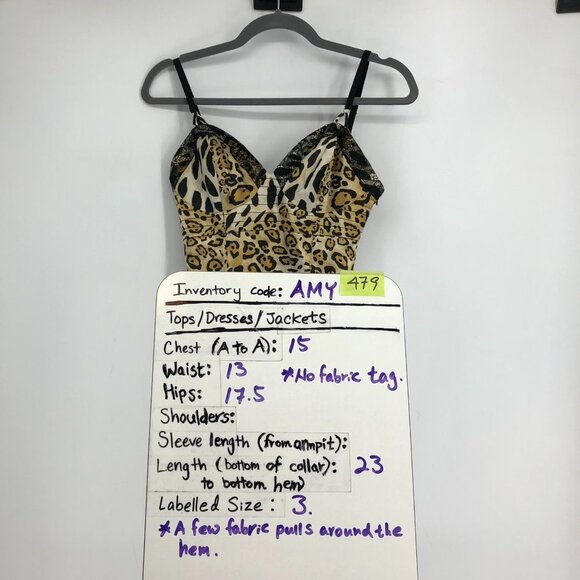 Inventory code: AMY 479
Tops/Dresses/Jackets
Chest (A to A): 15
Waist: 13 *No fabric tag.
Hips: 17.5
Shoulders:
Sleeve length (from armpit):
Length (bottom of collar): 23
to bottom hem)
Labelled Size: 3.
*A few fabric pulls around the
hem.